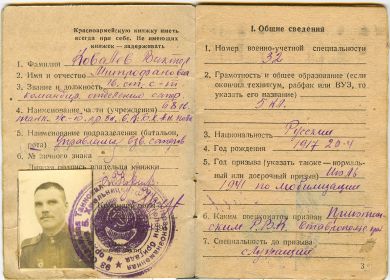 Красноармейскую книжку иметь
всегда при себе. Не имеющих
книжек — задерживать
1. Фамилия Ковалов Виктор
2. Имя и отчество Митрофанович
3. Звание и должность ст. с-нт
командир отделения
4. Наименование части (учреждения)
5. Наименование подразделения (батальон,
рота) Управления взв.
6. № личного знака
Личная подпись владельца книжки
I. Общие сведения
1. Номер военно-учетной специальности
32
2. Грамотность и общее образование (если
окончил техникум, рабфак или ВУЗ, то
указать его название)
5 кл.
3. Национальность Русский
4. Год рождения 1917
5. Год призыва (указать также — нормаль-
ный или досрочный призыв) Июль
1941 по мобилизации
6. Каким военкоматом призван
ским Р.В.К. Ставрополь
7. Специальность до призыва
Служащий
3